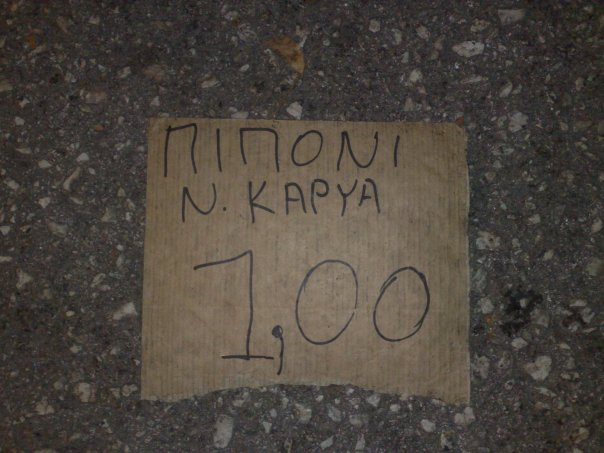 ΠΙΠΟΝΙ
Ν. ΚΑΡΥΑ
1,00